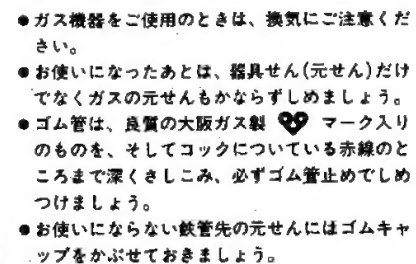 ●ガス機器をご使用のときは、換気にご注意くだ
さい。
●お使いになったあとは、器具せん(元せん)だけ
でなくガスの元せんもかならずしめましょう。
●ゴム管は、良質の大阪ガス製 マーク入り
のものを、そしてコックについている赤線のと
ころまで深くさしこみ、必ずゴム管止めでしめ
つけましょう。
●お使いにならない鉄管先の元せんにはゴムキャ
ップをかぶせておきましょう。